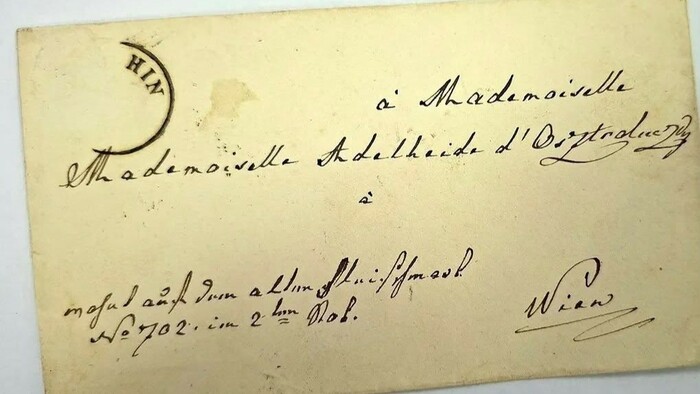 HIN
à Mademoiselle
Mademoiselle Adelheide d'
à
wohnt auf dem alten Fleischmark
No 702. im 2ten Stok.
Wien